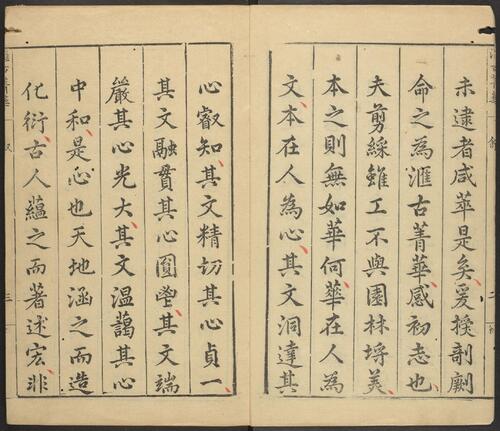 未逮者咸萃是矣爰授剞劂
命之為滙古菁華感初志也
夫剪綵雖工不與園林埓美
本之則無如華何華在人為
文本在人為心其文洞達其
心叡知其文精切其心貞一
其文融貫其心圓瑩其文端
嚴其心光大其文温藹其心
中和是心也天地涵之而造
化衍古人蘊之而著述宏非